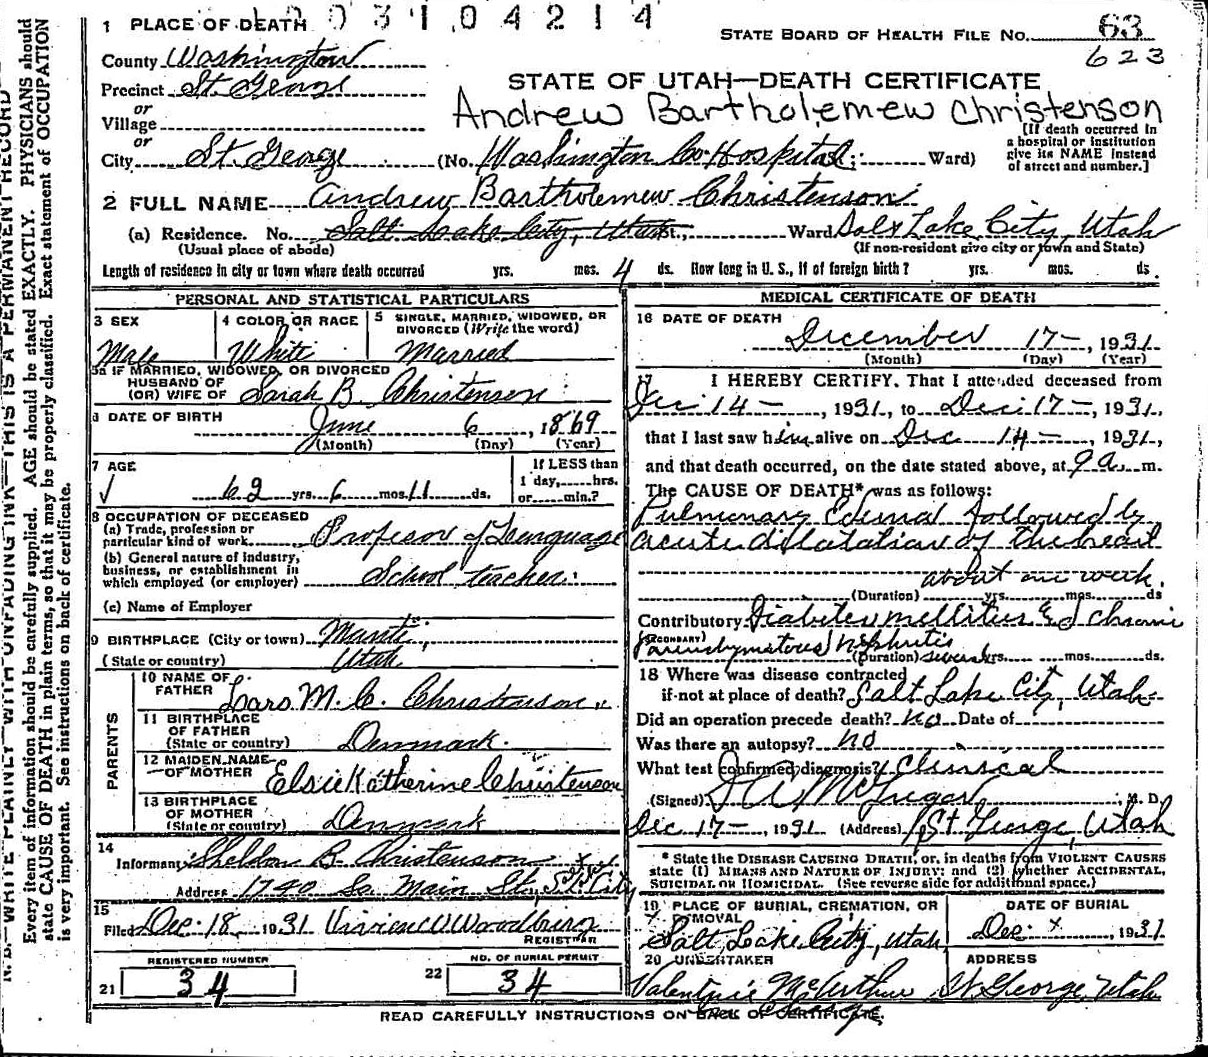 1 PLACE OF DEATH 1 0 0 3 1 0 4 2 1 4
STATE BOARD OF HEALTH FILE NO. 63
623
County Washington
Precinct St. George
or
Village
or
City St. George (No. Washington Co Hospital; Ward)
STATE OF UTAH—DEATH CERTIFICATE
Andrew Bartholemew Christenson
[If death occurred in
a hospital or institution
give its NAME instead
of street and number.]
2 FULL NAME Andrew Bartholemew Christenson
(a) Residence. No. Salt Lake City, Utah St., Ward Salt Lake City, Utah
(Usual place of abode) (If non-resident give city or town and State)
Length of residence in city or town where death occurred yrs. mos. 4 ds. How long in U. S., if of foreign birth? yrs. mos. ds.
PERSONAL AND STATISTICAL PARTICULARS
3 SEX 4 COLOR OR RACE 5 SINGLE, MARRIED, WIDOWED, OR
DIVORCED (Write the word)
Male White Married
5a IF MARRIED, WIDOWED, OR DIVORCED
HUSBAND OF
(OR) WIFE OF Sarah B. Christenson
6 DATE OF BIRTH
June 6, 1869
(Month) (Day) (Year)
7 AGE If LESS than
1 day, hrs.
62 yrs. 6 mos. 11 ds. or min.?
8 OCCUPATION OF DECEASED
(a) Trade, profession or
particular kind of work Profesor of Language
(b) General nature of industry,
business, or establishment in
which employed (or employer) School teacher
(c) Name of Employer
9 BIRTHPLACE (City or town) Manti,
(State or country) Utah
PARENTS
10 NAME OF
FATHER Lars M. C. Christenson
11 BIRTHPLACE
OF FATHER
(State or country) Denmark.
12 MAIDEN NAME
OF MOTHER Elsie Katherine Christenson
13 BIRTHPLACE
OF MOTHER
(State or country) Denmark
14
Informant Sheldon B. Christenson
Address 1740 So. Main St., S.L. City
15
Filed Dec. 18, 1931 Vivian W Woodbury
REGISTRAR
REGISTERED NUMBER NO. OF BURIAL PERMIT
21 34 22 34
MEDICAL CERTIFICATE OF DEATH
16 DATE OF DEATH
December 17—, 1931
(Month) (Day) (Year)
17 I HEREBY CERTIFY, That I attended deceased from
Dec 14—, 1931, to Dec 17—, 1931,
that I last saw him alive on Dec 14—, 1931,
and that death occurred, on the date stated above, at 9 a. m.
The CAUSE OF DEATH* was as follows:
Pulmonary Edema followed by
acute dilatation of the heart
about one week.
(Duration) yrs. mos. ds
Contributory Diabetes mellitus & chronic
(SECONDARY) Parenchymatous nephritis
(Duration) several yrs. mos. ds.
18 Where was disease contracted
if not at place of death? Salt Lake City, Utah
Did an operation precede death? no Date of
Was there an autopsy? no
What test confirmed diagnosis? Clinical
(Signed) McGregor, M. D.
Dec 17—, 1931 (Address) St George, Utah
* State the DISEASE CAUSING DEATH, or, in deaths from VIOLENT CAUSES
state (1) MEANS AND NATURE OF INJURY; and (2) whether ACCIDENTAL,
SUICIDAL OR HOMICIDAL. (See reverse side for additional space.)
19 PLACE OF BURIAL, CREMATION, OR
REMOVAL DATE OF BURIAL
Salt Lake City, Utah Dec. x, 1931
20 UNDERTAKER ADDRESS
McArthur St. George, Utah
READ CAREFULLY INSTRUCTIONS ON BACK OF CERTIFICATE.
N. B.—WRITE PLAINLY WITH UNFADING INK—THIS IS A PERMANENT RECORD
Every item of information should be carefully supplied. AGE should be stated EXACTLY. PHYSICIANS should
state CAUSE OF DEATH in plain terms, so that it may be properly classified. Exact statement of OCCUPATION
is very important. See instructions on back of certificate.